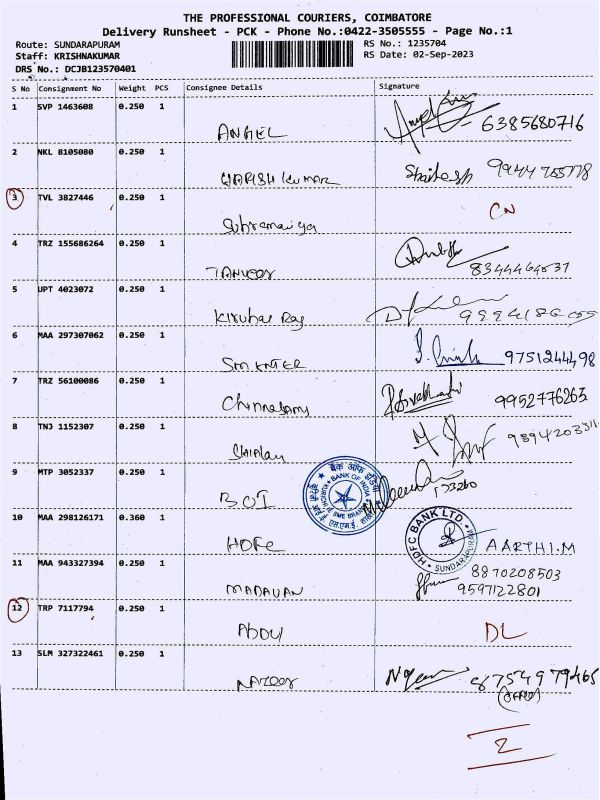 THE PROFESSIONAL COURIERS, COIMBATORE
Delivery Runsheet - PCK - Phone No.:0422-3505555 - Page No.:1
Route: SUNDARAPURAM RS No.: 1235704
Staff: KRISHNAKUMAR RS Date: 02-Sep-2023
DRS No.: DCJB123570401
S No Consignment No Weight PCS Consignee Details Signature
1 SVP 1463608 0.250 1
ANGEL 6385680716
2 NKL 8105080 0.250 1
HARISH KUMAR
3 TVL 3827446 0.250 1
Subramaniya CN
4 TRZ 155686264 0.250 1
TANVEER
5 UPT 4023072 0.250 1
Kirubai Raj
6 MAA 297307062 0.250 1
SM ENTER 9751244498
7 TRZ 56100086 0.250 1
Chinnasamy 9952776263
8 TNJ 1152307 0.250 1
9 MTP 3052337 0.250 1
BOI
बैंक ऑफ इंडिया
BANK OF INDIA
KURICHI IE SME BRANCH
10 MAA 298126171 0.360 1
HDFC AARTHI.M
HDFC BANK LTD.
SUNDARAPURAM
11 MAA 943327394 0.250 1
MADAVAN 8870208503
9597122801
12 TRP 7117794 0.250 1
ABDUL DL
13 SLM 327322461 0.250 1
NAZEER 8754979465
2